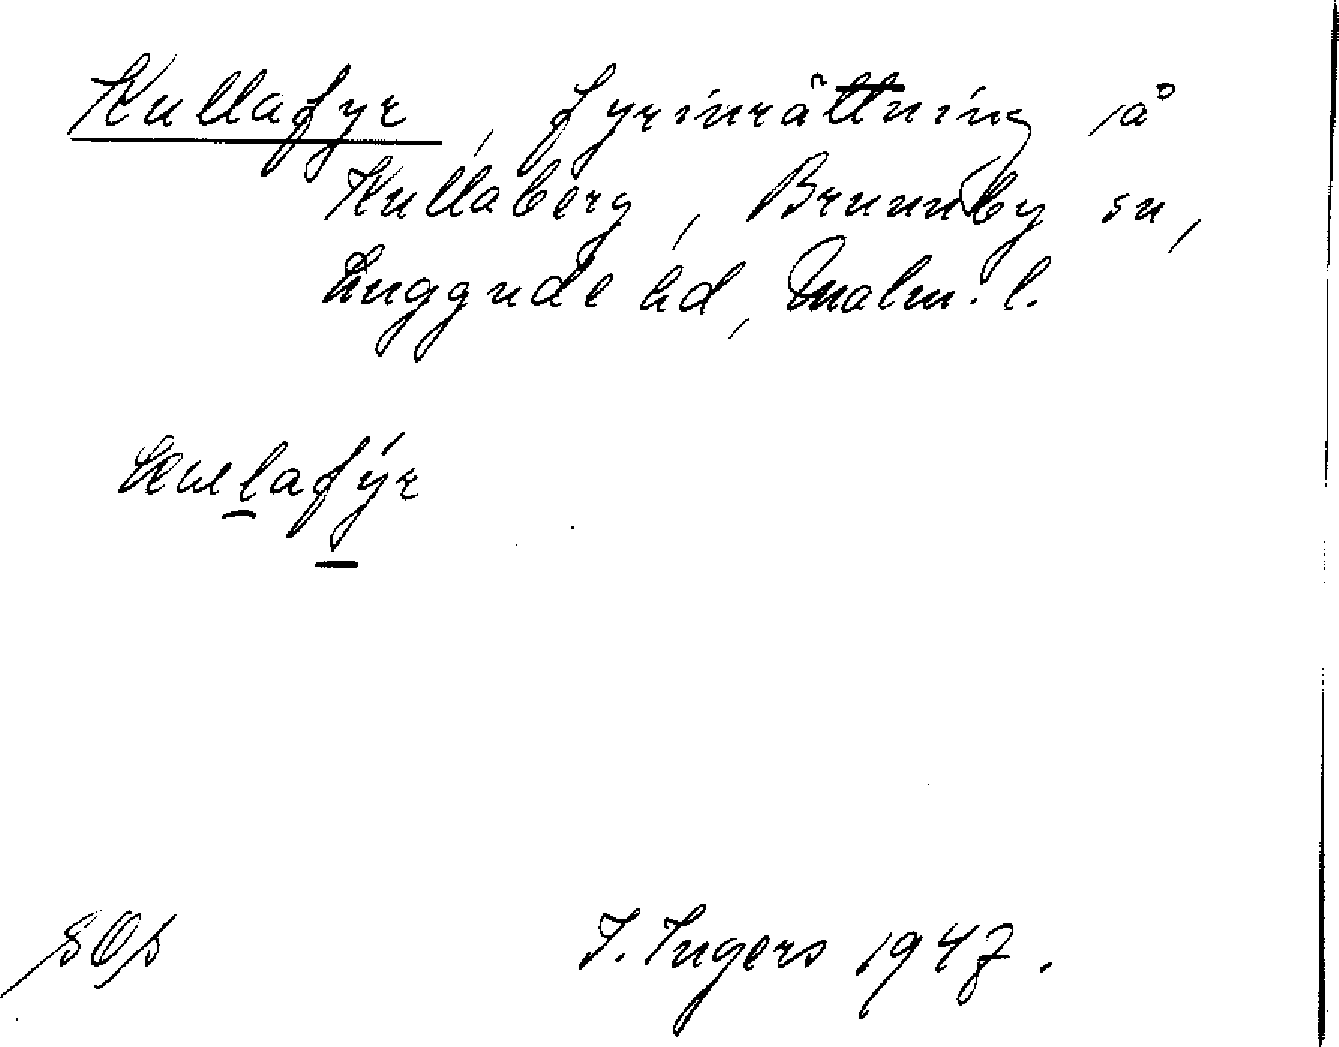 Kullafyr, fyrinrättning å
Kullaberg, Brunnby sn,
Luggude hd, Malm. l.
SOS
I. Ingers 1947.